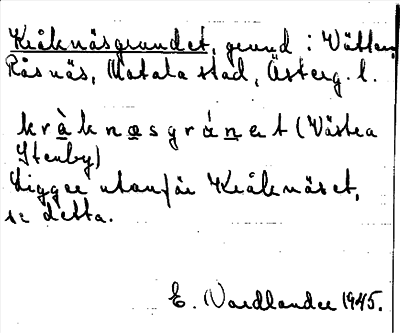 Kråknäsgrundet, grund i Vättern,
Råsnäs, Motala stad, Österg. l.
kràknæsgrúnet (Västra
Stenby)
Ligger utanför Kråknäset,
se detta.
E. Nordlander 1945.